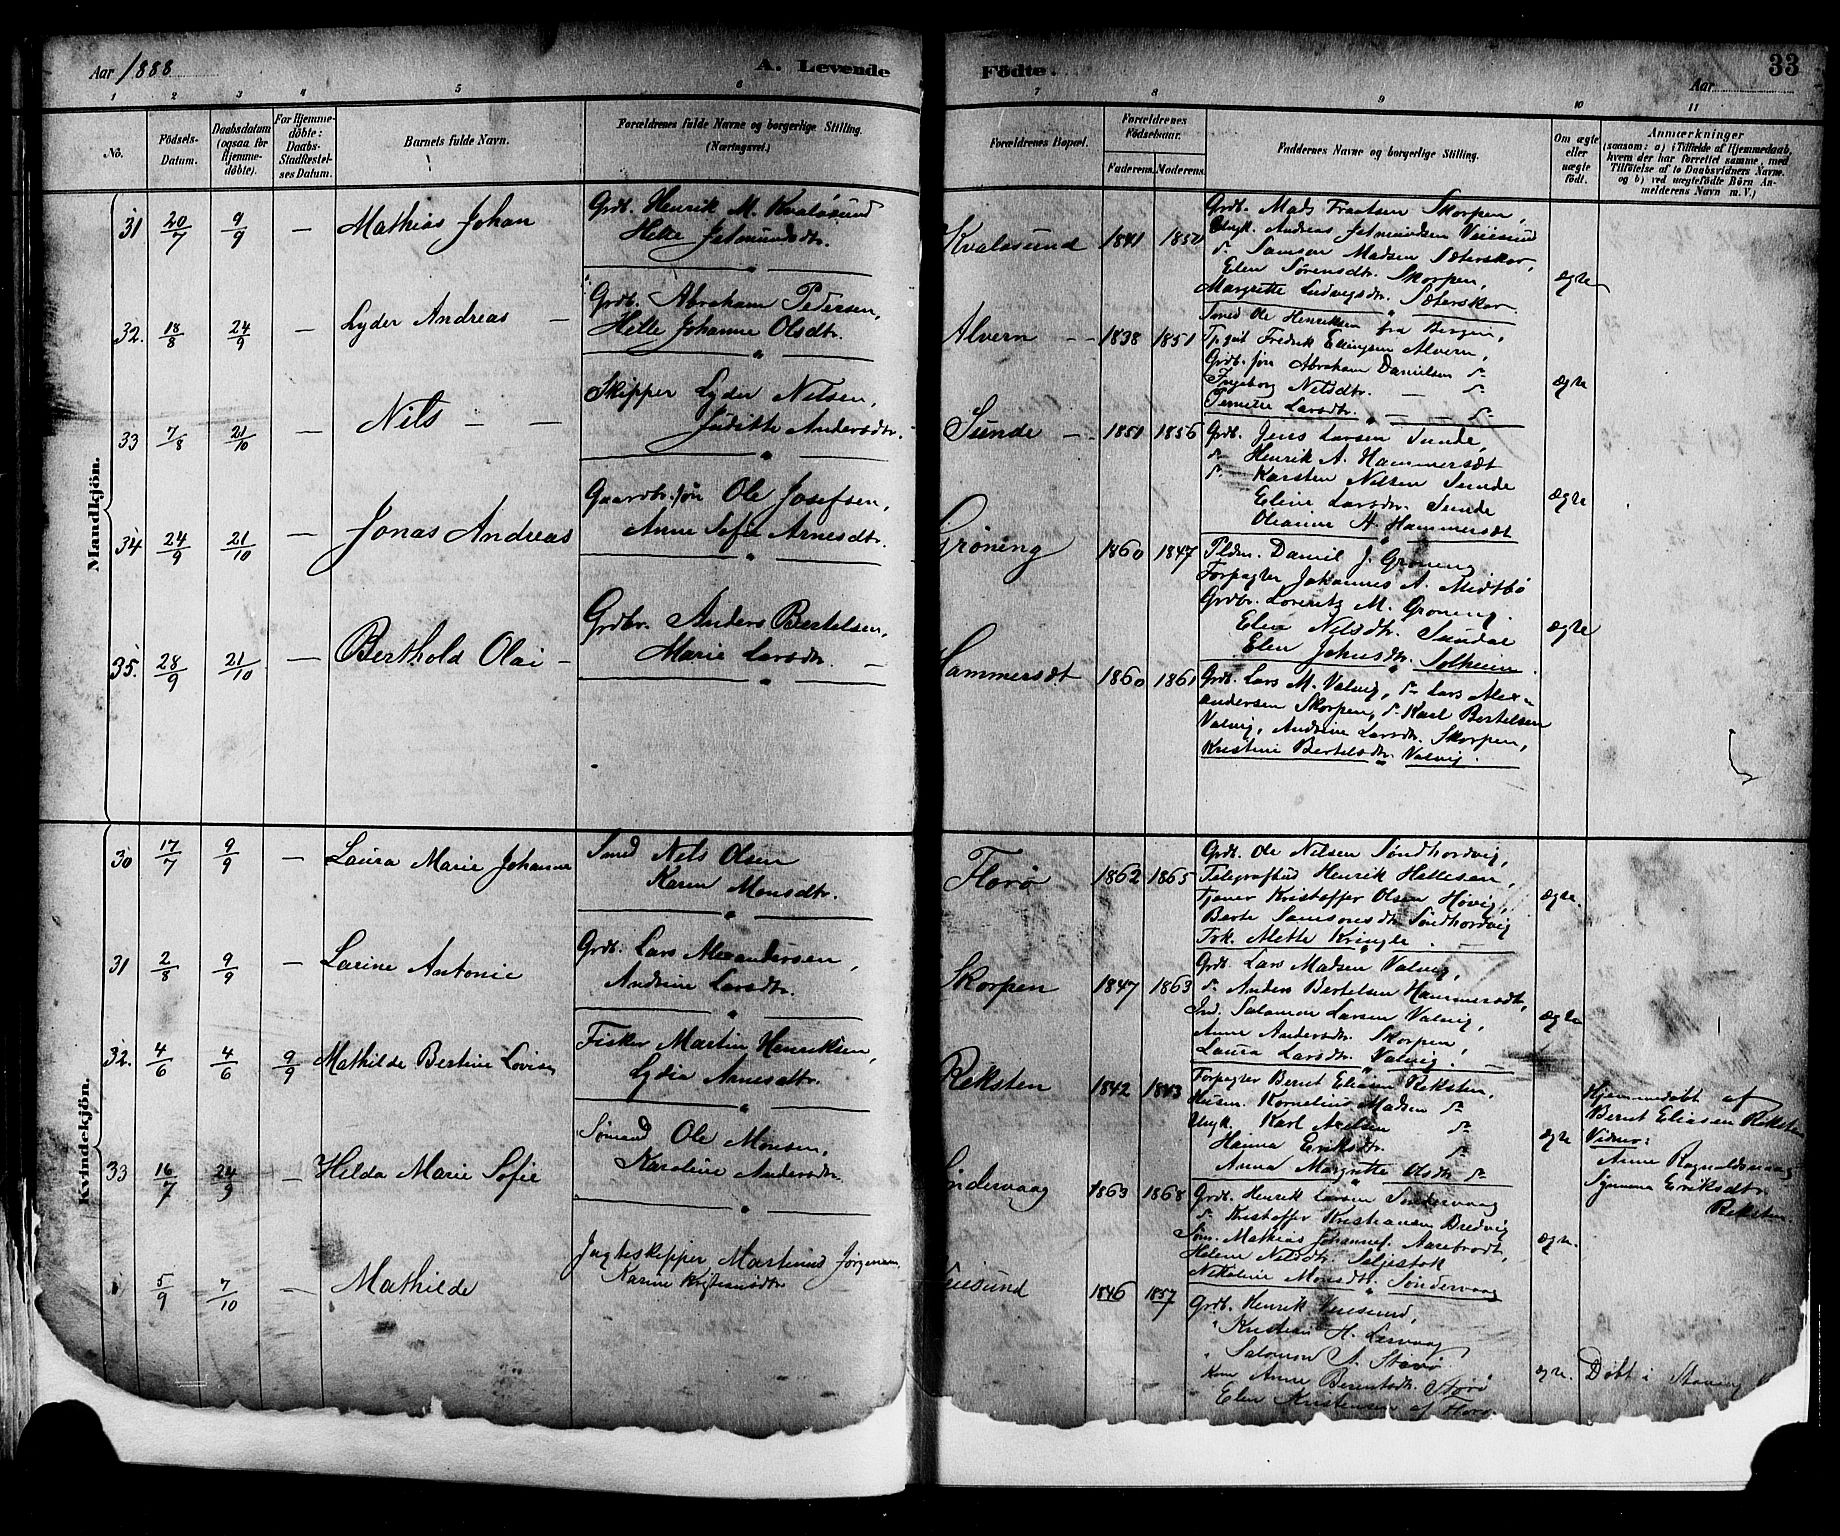 Aar 1888
A. Levende
Födte.
33
Aar
1 2 3 4 5 6 7 8 9 10 11
No.
Födsels-Datum.
Daabsdatum (ogsaa for Hjemme-döbte).
For Hjemme-döbte: Daabs-Stadfæstel-ses Datum.
Barnets fulde Navn.
Forældrenes fulde Navne og borgerlige Stilling. (Næringsvei.)
Forældrenes Bopæl.
Forældrenes Födselsaar.
Faderens. Moderens.
Faddernes Navne og borgerlige Stilling.
Om ægte eller uægte födt.
Anmærkninger
(saasom: a) i Tilfælde af Hjemmedaab,
hvem der har forrettet samme, med
Tilföielse af to Daabsvidners Navne.
og b) ved uægtefödte Börn An-
melderens Navn m. V.)
Mandkjön.
31 20/7 9/9 — Mathias Johan
Grdb. Henrik M. Kvalösund
Helle Jetmundsdtr.
Kvaløsund 1841 1850
Grdb. Mads Frantsen Skorpen,
Ungk. Andreas Jetmundsen Veiesund
Samson Madsen Sæterskar,
Elen Sørensdtr. Skorpen,
Margrette Ludvigsdtr. Sæterskar
ægte
32. 18/8 24/9 — Lyder Andreas —
Grdb. Abraham Pedersen,
Helle Johanne Olsdtr.
Alvern 1838 1851
Smed Ole Henriksen fra Bergen,
Fredrik Ellingsen Alvern,
Grdb. søn Abraham Danielsen
Ingeborg Nilsdtr. —
Larsdtr. —
ægte
33 7/8 21/10 — Nils — —
Skipper Lyder Nilsen,
Judithe Andersdtr.
Sunde 1851 1856
Grdb. Jens Larsen Sunde,
Henrik A. Hammersæt
Karsten Nilsen Sunde
Eline Larsdtr. Sunde
Oleanne A. Hammersæt
ægte
34 24/9 21/10 — Jonas Andreas
Gaardbr. søn Ole Josefsen,
Anne Sofie Arnesdtr.
Grøning 1860 1847
Pldm. Daniel J. Grøning
Forpagter Johannes A. Midtbø
Grdbr. Lorentz M. Grøning.
Elen Nilsdtr. Sandal
Elen Johnsdtr. Solheim.
ægte
35. 28/9 21/10 — Berthold Olai —
Grdbr. Anders Bertelsen,
Marie Larsdtr. —
Hammersæt 1860 1861
Grdb. Lars M. Valvig, Lars Alex-
andersen Skorpen, Karl Bertelsen
Valvig, Andrine Larsdtr. Skorpen,
Kristine Bertelsdtr. Valvig.
Kvindekjön.
30 17/7 9/9 — Laura Marie Johanne
Smed Nils Olsen
Karen Monsdtr.
Florø 1862 1865
Grdb. Ole Nilsen Søndhordvig,
Telegrafbud Henrik Hellesen,
Tjener Kristoffer Olsen Høvig,
Berte Samsonsdtr. Søndhordvig
Frk. Alette Kringle.
ægte.
31 2/8 9/9 — Larine Antonie
Grdb. Lars Alexandersen,
Andrine Larsdtr.
Skorpen 1847 1863
Grdb. Lars Madsen Valvig,
Anders Bertelsen Hammersæt,
Ind. Salamon Larsen Valvig,
Anne Andersdtr. Skorpen,
Laura Larsdtr. Valvig.
ægte
32. 4/6 4/6 9/9 Mathilde Bertine Lovise
Fisker Martin Henriksen,
Lydia Arnesdtr.
Reksten 1842 1843
Forpagter Bernt Eliasen Reksten,
Husm. Kornelius Madsen
Ungk. Karl Axelsen
Hanna Eriksdtr.
Anna Margrette Olsdtr
ægte
Hjemmedøbt af
Bernt Eliasen Reksten
Vidner:
Anne Ragnaldsvaag
Synneva Eriksdtr.
Reksten.
33 16/7 24/9 — Hilda Marie Sofie
Sømand Ole Monsen,
Karoline Andersdtr.
Søndervaag 1863 1868
Grdb. Henrik Larsen Søndervaag
Kristoffer Kristiansen Bredvig
Søm. Mathias Johannes. Aarebrodt,
Helene Nilsdtr. Seljestok
Nikoline Monsdtr. Søndervaag
ægte.
5/9 7/10 — Mathilde
Jagteskipper Martinus Jørgensen,
Karine Kristiansdtr
Veisund 1846 1857
Grdb. Henrik Veiesund,
" Kristian H. Lervaag
" Salomon A. Starø
Kone Anne Berentsdtr. Storø
Elen Kristensen af Florø.
ægte. Døbt i Stavang